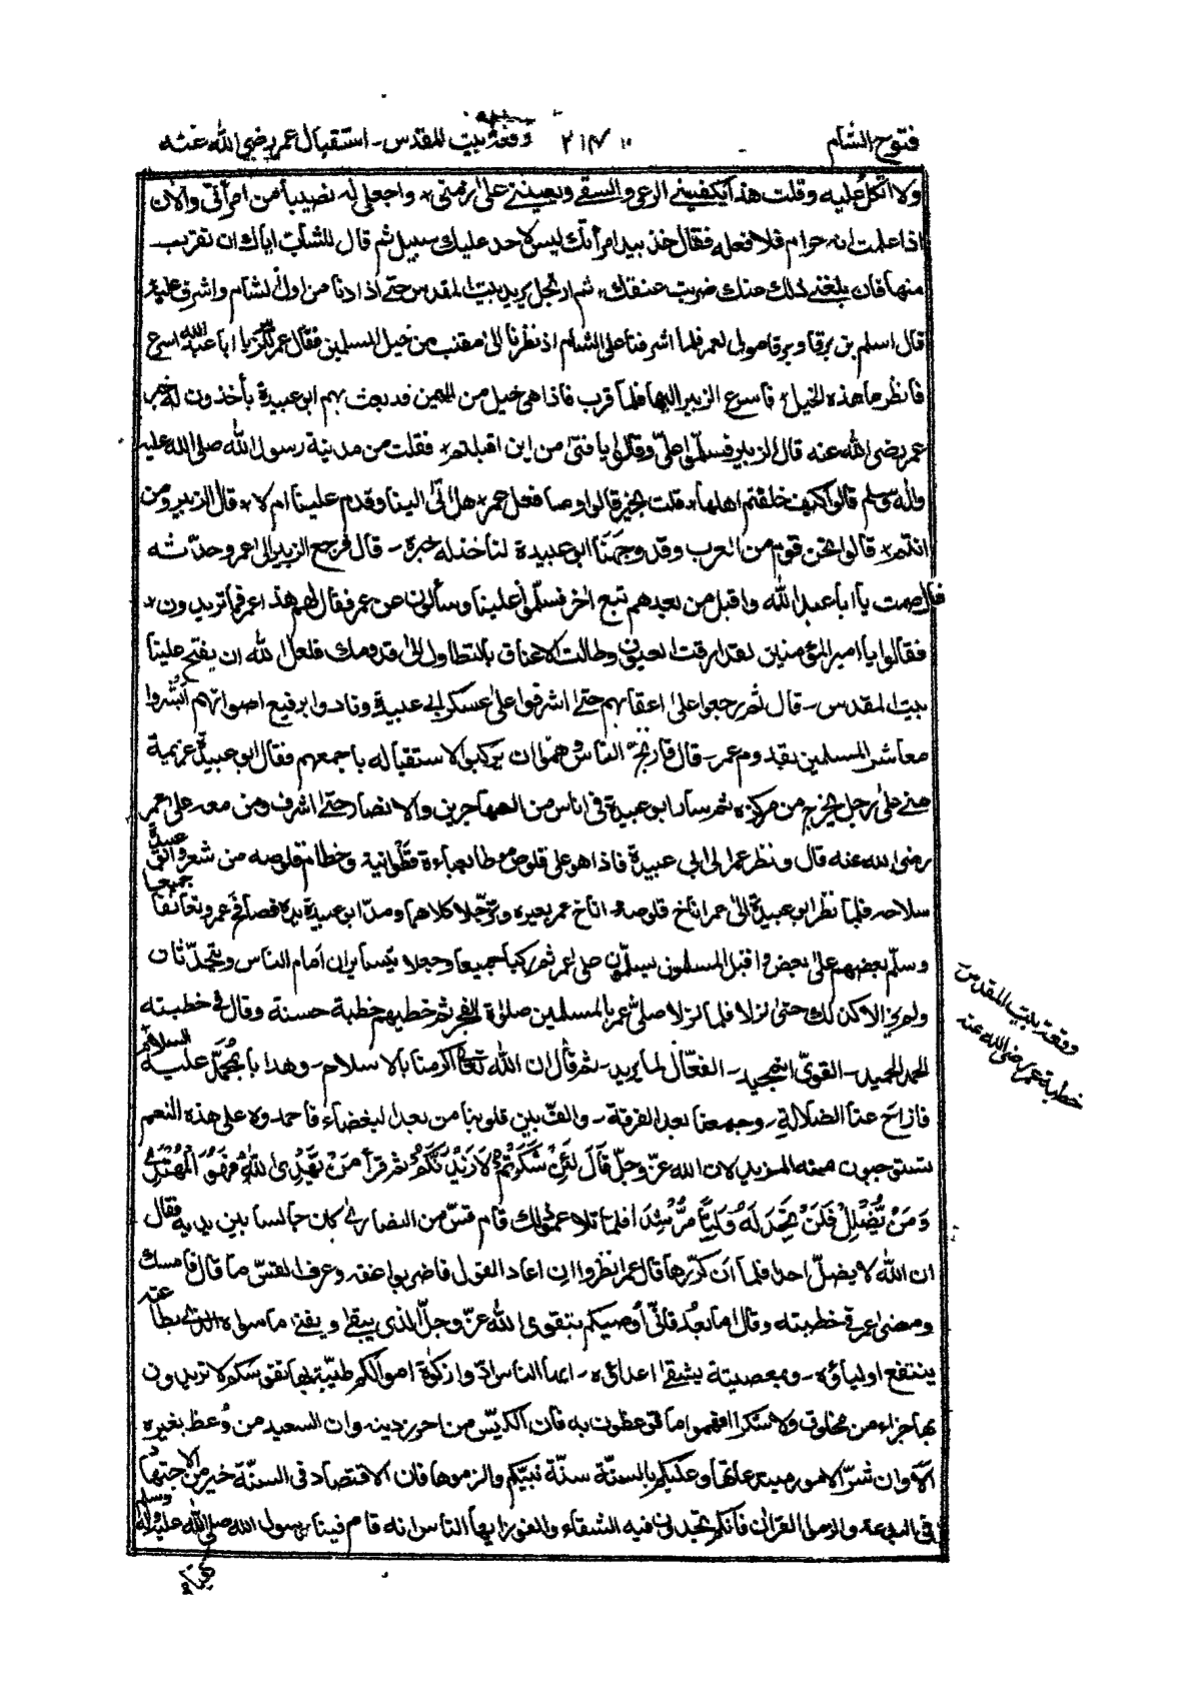 فتوح الشام
وقعة بيت المقدس - استقبال عمر رضي الله عنه
ولا اتكل عليه وقلت هذا يكفيني الرعي والسقي ويعينني على زمني واجعلي له نصيبا من امرأتي والان
اذا علمت انه حرام فلا افعله فقال خذ بيد امرأتك ليس لاحد عليك سبيل ثم قال للشاب اياك ان تقرب
منها فان بلغني ذلك عنك ضربت عنقك ثم ارتحل يريد بيت المقدس حتى اذا دنا من اول الشام واشرف عليه
قال اسلم بن برقا وبرقا مولى لعمر فلما اشرفنا على الشام اذ نظرنا الى مقنب من خيل المسلمين فقال عمر للزبير يا ابا عبد الله اسرع
فانظر ما هذه الخيل فاسرع الزبير اليها فلما قرب فاذا هي خيل من اليمن قد بعث بهم ابو عبيدة يأخذون له خبر
عمر رضي الله عنه قال الزبير فسلموا علي وقالوا يا فتى من اين اقبلتم فقلت من مدينة رسول الله صلى الله عليه
واله وسلم قالوا كيف خلفتم اهلها قلت بخير قالوا وما فعل عمر هل اتى الينا وقدم علينا ام لا قال الزبير ومن
انتم قالوا نحن قوم من العرب وقد وجهنا ابو عبيدة لنأخذ له خبره - قال فرجع الزبير الى عمر وحدثه
فقال صمت يا ابا عبد الله واقبل من بعدهم تبع اخر فسلموا علينا وسألوا عن عمر فقال لهم هذا عمر فما تريدون
فقالوا يا امير المؤمنين لقد ارقت العيون وطالت الاعناق بالتطاول الى قدومك فلعل الله ان يفتح علينا
بيت المقدس - قال ثم رجعوا على اعقابهم حتى اشرفوا على عسكر ابي عبيدة ونادوا برفيع اصواتهم ابشروا
معاشر المسلمين بقدوم عمر - قال فارتج الناس وهموا ان يركبوا لاستقباله باجمعهم فقال ابو عبيدة عزيمة
مني على رجل يخرج من مركزه ثم سار ابو عبيدة في اناس من المهاجرين والانصار حتى اشرف ومن معه على عمر
رضي الله عنه قال ونظر عمر الى ابي عبيدة فاذا هو على قلوص بعباءة قطوانية وخطام قلوصه من شعر
سلاحه فلما نظر ابو عبيدة الى عمر اناخ قلوصه واناخ عمر بعيره وترجلا كلاهما ومد ابو عبيدة يده فصافح عمر وتعانقا جميعا
وسلم بعضهم على بعض واقبل المسلمون يسلمون على عمر ثم ركبا جميعا وجعلا يتسايران امام الناس ويتحدثان
ولم يزالا كذلك حتى نزلا فلما نزلا صلى عمر بالمسلمين صلوة الفجر ثم خطبهم خطبة حسنة وقال في خطبته
الحمد لله الحميد - القوي المجيد - الفعال لما يريد - ثم قال ان الله تعالى اكرمنا بالاسلام - وهدانا بمحمد عليه السلام
فازاح عنا الضلالة - وجمعنا بعد الفرقة - والف بين قلوبنا من بعد البغضاء فاحمدوه على هذه النعم
تستوجبون منه المزيد لان الله عز وجل قال لئن شكرتم لازيدنكم ثم قرأ من يهدي الله فهو المهتدي
ومن يضلل فلن تجد له وليا مرشدا فلما تلا عمر ذلك قام قس من النصارى كان جالسا بين يديه فقال
ان الله لا يضل احدا فلما ان كررها قال عمر انظروا ان اعاد القول فاضربوا عنقه وعرف القس ما قال فامسك عنه
ومضى عمر في خطبته وقال اما بعد فاني اوصيكم بتقوى الله عز وجل الذي يبقى ويفنى ما سواه
ينتفع اولياؤه - وبمعصيته يشقى اعداؤه - ايها الناس ادوا زكوة اموالكم طيبة بها نفوسكم لا تريدون
بها جزاء من مخلوق ولا شكرا افهموا ما توعظون به فان الكيس من احرز دينه وان السعيد من وعظ بغيره
الا وان شر الامور مبتدعاتها وعليكم بالسنة سنة نبيكم والزموها فان الاقتصاد في السنة خير من الاجتهاد
في البدعة والزموا القران فانكم تجدون فيه الشفاء والفوز ايها الناس انه قام فينا رسول الله صلى الله عليه واله وسلم
وقعة بيت المقدس
خطبة عمر رضي الله عنه